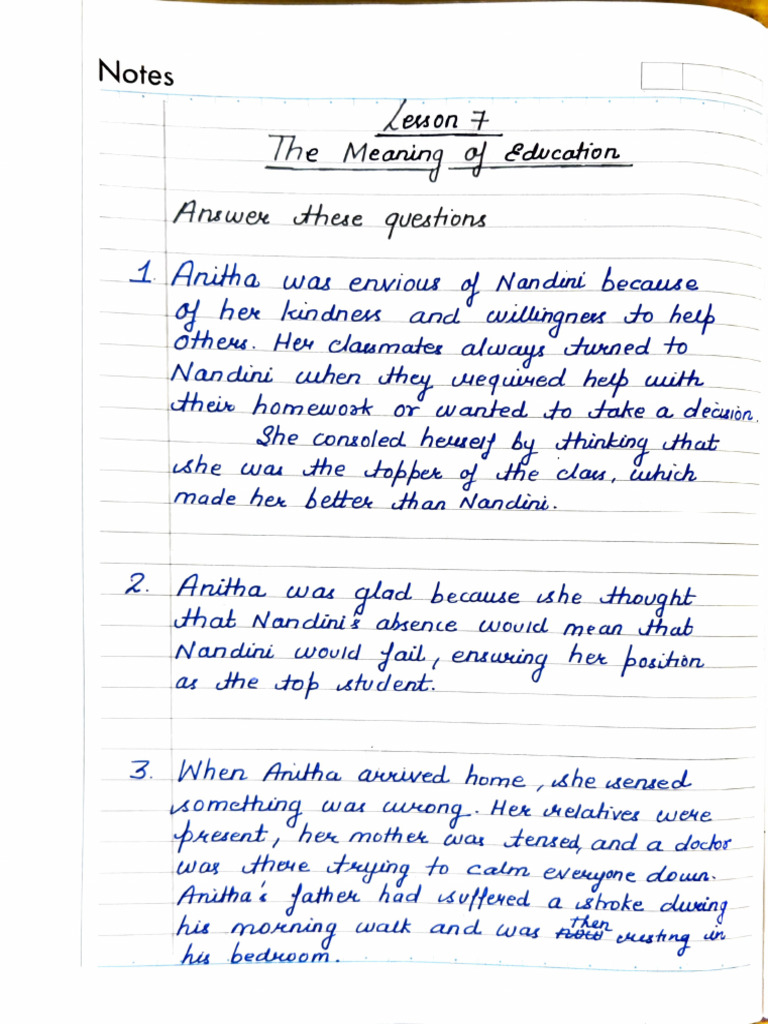 Notes
Lesson 7
The Meaning of Education
Answer these questions
1. Anitha was envious of Nandini because
of her kindness and willingness to help
others. Her classmates always turned to
Nandini when they required help with
their homework or wanted to take a decision.
She consoled herself by thinking that
she was the topper of the class, which
made her better than Nandini.
2. Anitha was glad because she thought
that Nandini's absence would mean that
Nandini would fail, ensuring her position
as the top student.
3. When Anitha arrived home, she sensed
something was wrong. Her relatives were
present, her mother was tensed, and a doctor
was there trying to calm everyone down.
Anitha's father had suffered a stroke during
his morning walk and was now then resting in
his bedroom.